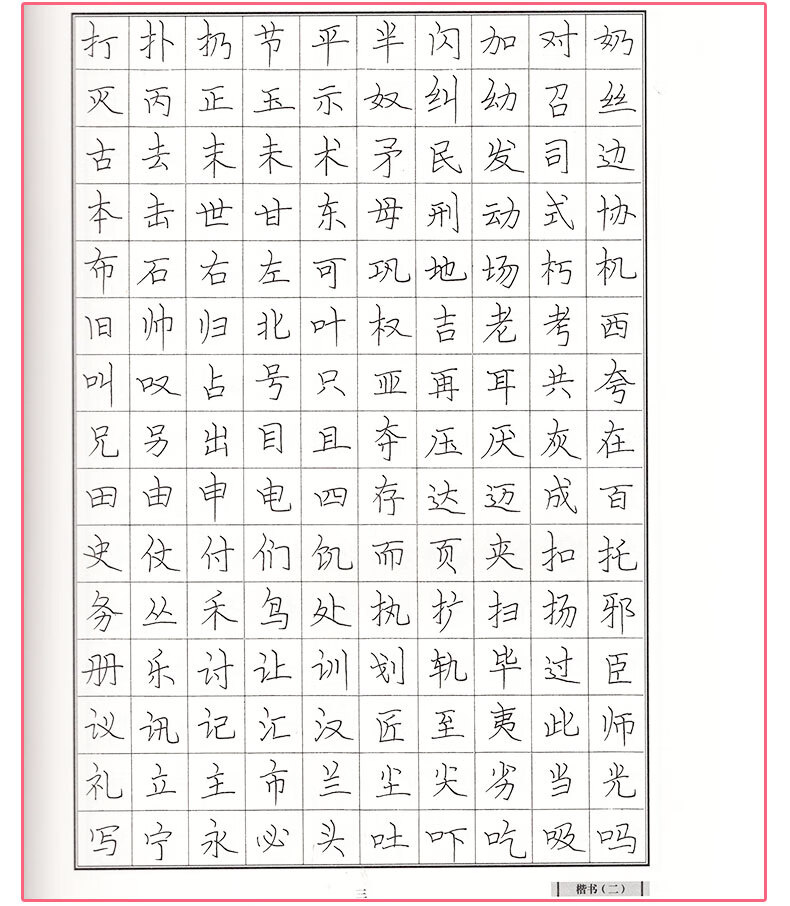 打扑扔节平半闪加对奶
灭丙正玉示奴纠幼召丝
古去末未术矛民发司边
本击世甘东母刑动式协
布石右左可巩地场朽机
旧帅归北叶权吉老考西
叫叹占号只亚再耳共夸
兄另出目且夺压厌灰在
田由申电四存达迈成百
史仗付们饥而页夹扣托
务丛禾鸟处执扩扫扬邪
册乐讨让训划轨毕过臣
议讯记汇汉匠至夷此师
礼立主市兰尘尖劣当光
写宁永必头吐吓吃吸吗
三
楷书(二)